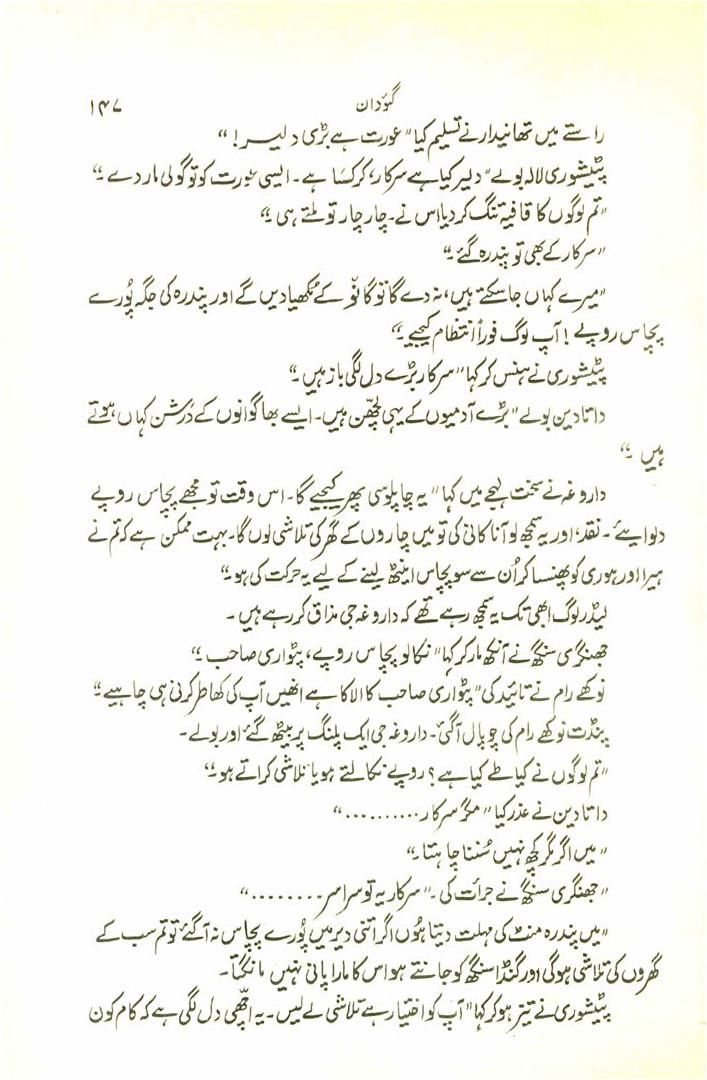 گؤدان ۱۴۷
راستے میں تھانیدار نے تسلیم کیا "عورت ہے بڑی دلیر!"
پٹیشوری لالہ بولے "دلیر کیا ہے سرکار، کرکسا ہے۔ ایسی عورت کو تو گولی مار دے۔"
"تم لوگوں کا قافیہ تنگ کر دیا اس نے۔ چار چار تو ملتے ہی۔"
"سرکار کے بھی تو پندرہ گئے۔"
"میرے کہاں جا سکتے ہیں، نہ دے گا تو گانؤ کے مُکھیا دیں گے اور پندرہ کی جگہ پُورے
پچاس روپے! آپ لوگ فوراً انتظام کیجیے۔"
پٹیشوری نے ہنس کر کہا "سرکار بڑے دل لگی باز ہیں۔"
داتادین بولے "بڑے آدمیوں کے یہی لچھّن ہیں۔ ایسے بھاگوانوں کے دَرشن کہاں ہوتے
ہیں۔"
داروغہ نے سخت لہجے میں کہا "یہ چاپلوسی پھر کیجیے گا۔ اس وقت تو مجھے پچاس روپے
دلوایئے۔ نقد، اور یہ سمجھ لو آناکانی کی تو میں چاروں کے گھر کی تلاشی لوں گا۔ بہت ممکن ہے کہ تم نے
ہیرا اور ہوری کو پھنسا کر اُن سے سو پچاس اینٹھ لینے کے لیے یہ حرکت کی ہو۔"
لیڈر لوگ ابھی تک یہ سمجھ رہے تھے کہ داروغہ جی مذاق کر رہے ہیں۔
جھنگری سنگھ نے آنکھ مار کر کہا "نکالو پچاس روپے، پٹواری صاحب۔"
نوکھے رام نے تائید کی "پٹواری صاحب کا الاکا ہے انھیں آپ کی کھاطر کرنی ہی چاہیے۔"
پنڈت نوکھے رام کی چوپال آگئی۔ داروغہ جی ایک پلنگ پر بیٹھ گئے اور بولے۔
"تم لوگوں نے کیا طے کیا ہے؟ روپے نکالتے ہو یا تلاشی کراتے ہو۔"
داتادین نے عذر کیا "مگر سرکار.........."
"میں اگر مگر کچھ نہیں سُننا چاہتا۔"
"جھنگری سنگھ نے جرأت کی۔" سرکار یہ تو سراسر........"
"میں پندرہ منٹ کی مہلت دیتا ہُوں اگر اتنی دیر میں پُورے پچاس نہ آگئے تو تم سب کے
گھروں کی تلاشی ہوگی اور گنڈا سنگھ کو جانتے ہو اس کا مارا پانی نہیں مانگتا۔
پٹیشوری نے تیز ہو کر کہا "آپ کو اختیار ہے تلاشی لے لیں۔ یہ اچھّی دل لگی ہے کہ کام کون